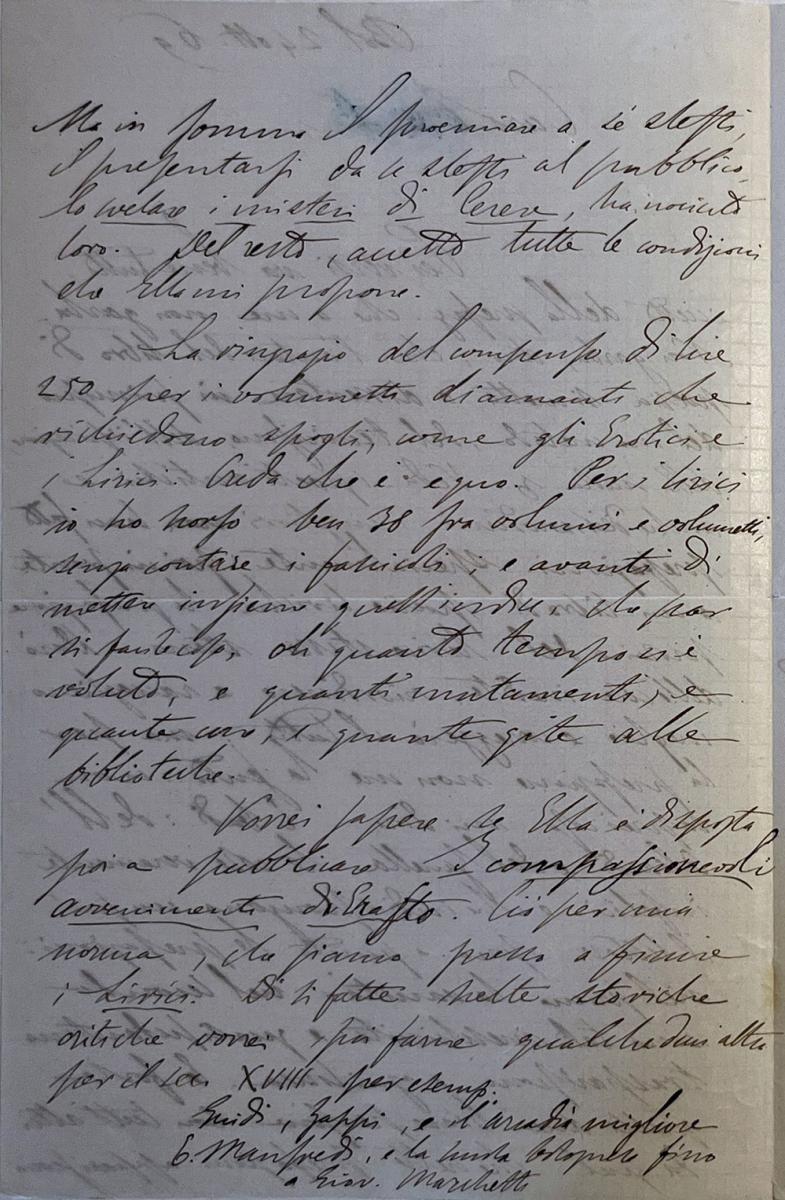 Ma in somma il proemiare a sè stessi,
il presentarsi da se stessi al pubblico,
lo svelare i misteri di Cerere, ha nociuto
loro. Del resto, accetto tutte le condizioni
che Ella mi propone.
La ringrazio del compenso di lire
250 per i volumetti diamanti che
richiedono spogli, come gli Erotici e
i Lirici. Creda che è equo. Per i lirici
io ho scorso ben 38 fra volumi e volumetti,
senza contare i fascicoli; e avanti di
mettere insieme quell'indice, che par
sì facil cosa, oh quanto tempo ci è
voluto, e quanti mutamenti, e
quante cure, e quante gite alle
biblioteche.
Vorrei sapere se Ella è disposta
poi a pubblicare I compassionevoli
avvenimenti di Erasto. Ciò per mia
norma, che siamo presso a finire
i Lirici. Di sì fatte scelte storiche
critiche vorrei poi farne qualchedun'altra
per il sec. XVIII per esemp.
Guidi, Zappi, e l'arcadia migliore
E. Manfredi, e la scuola bolognese fino
a Giov. Marchetti